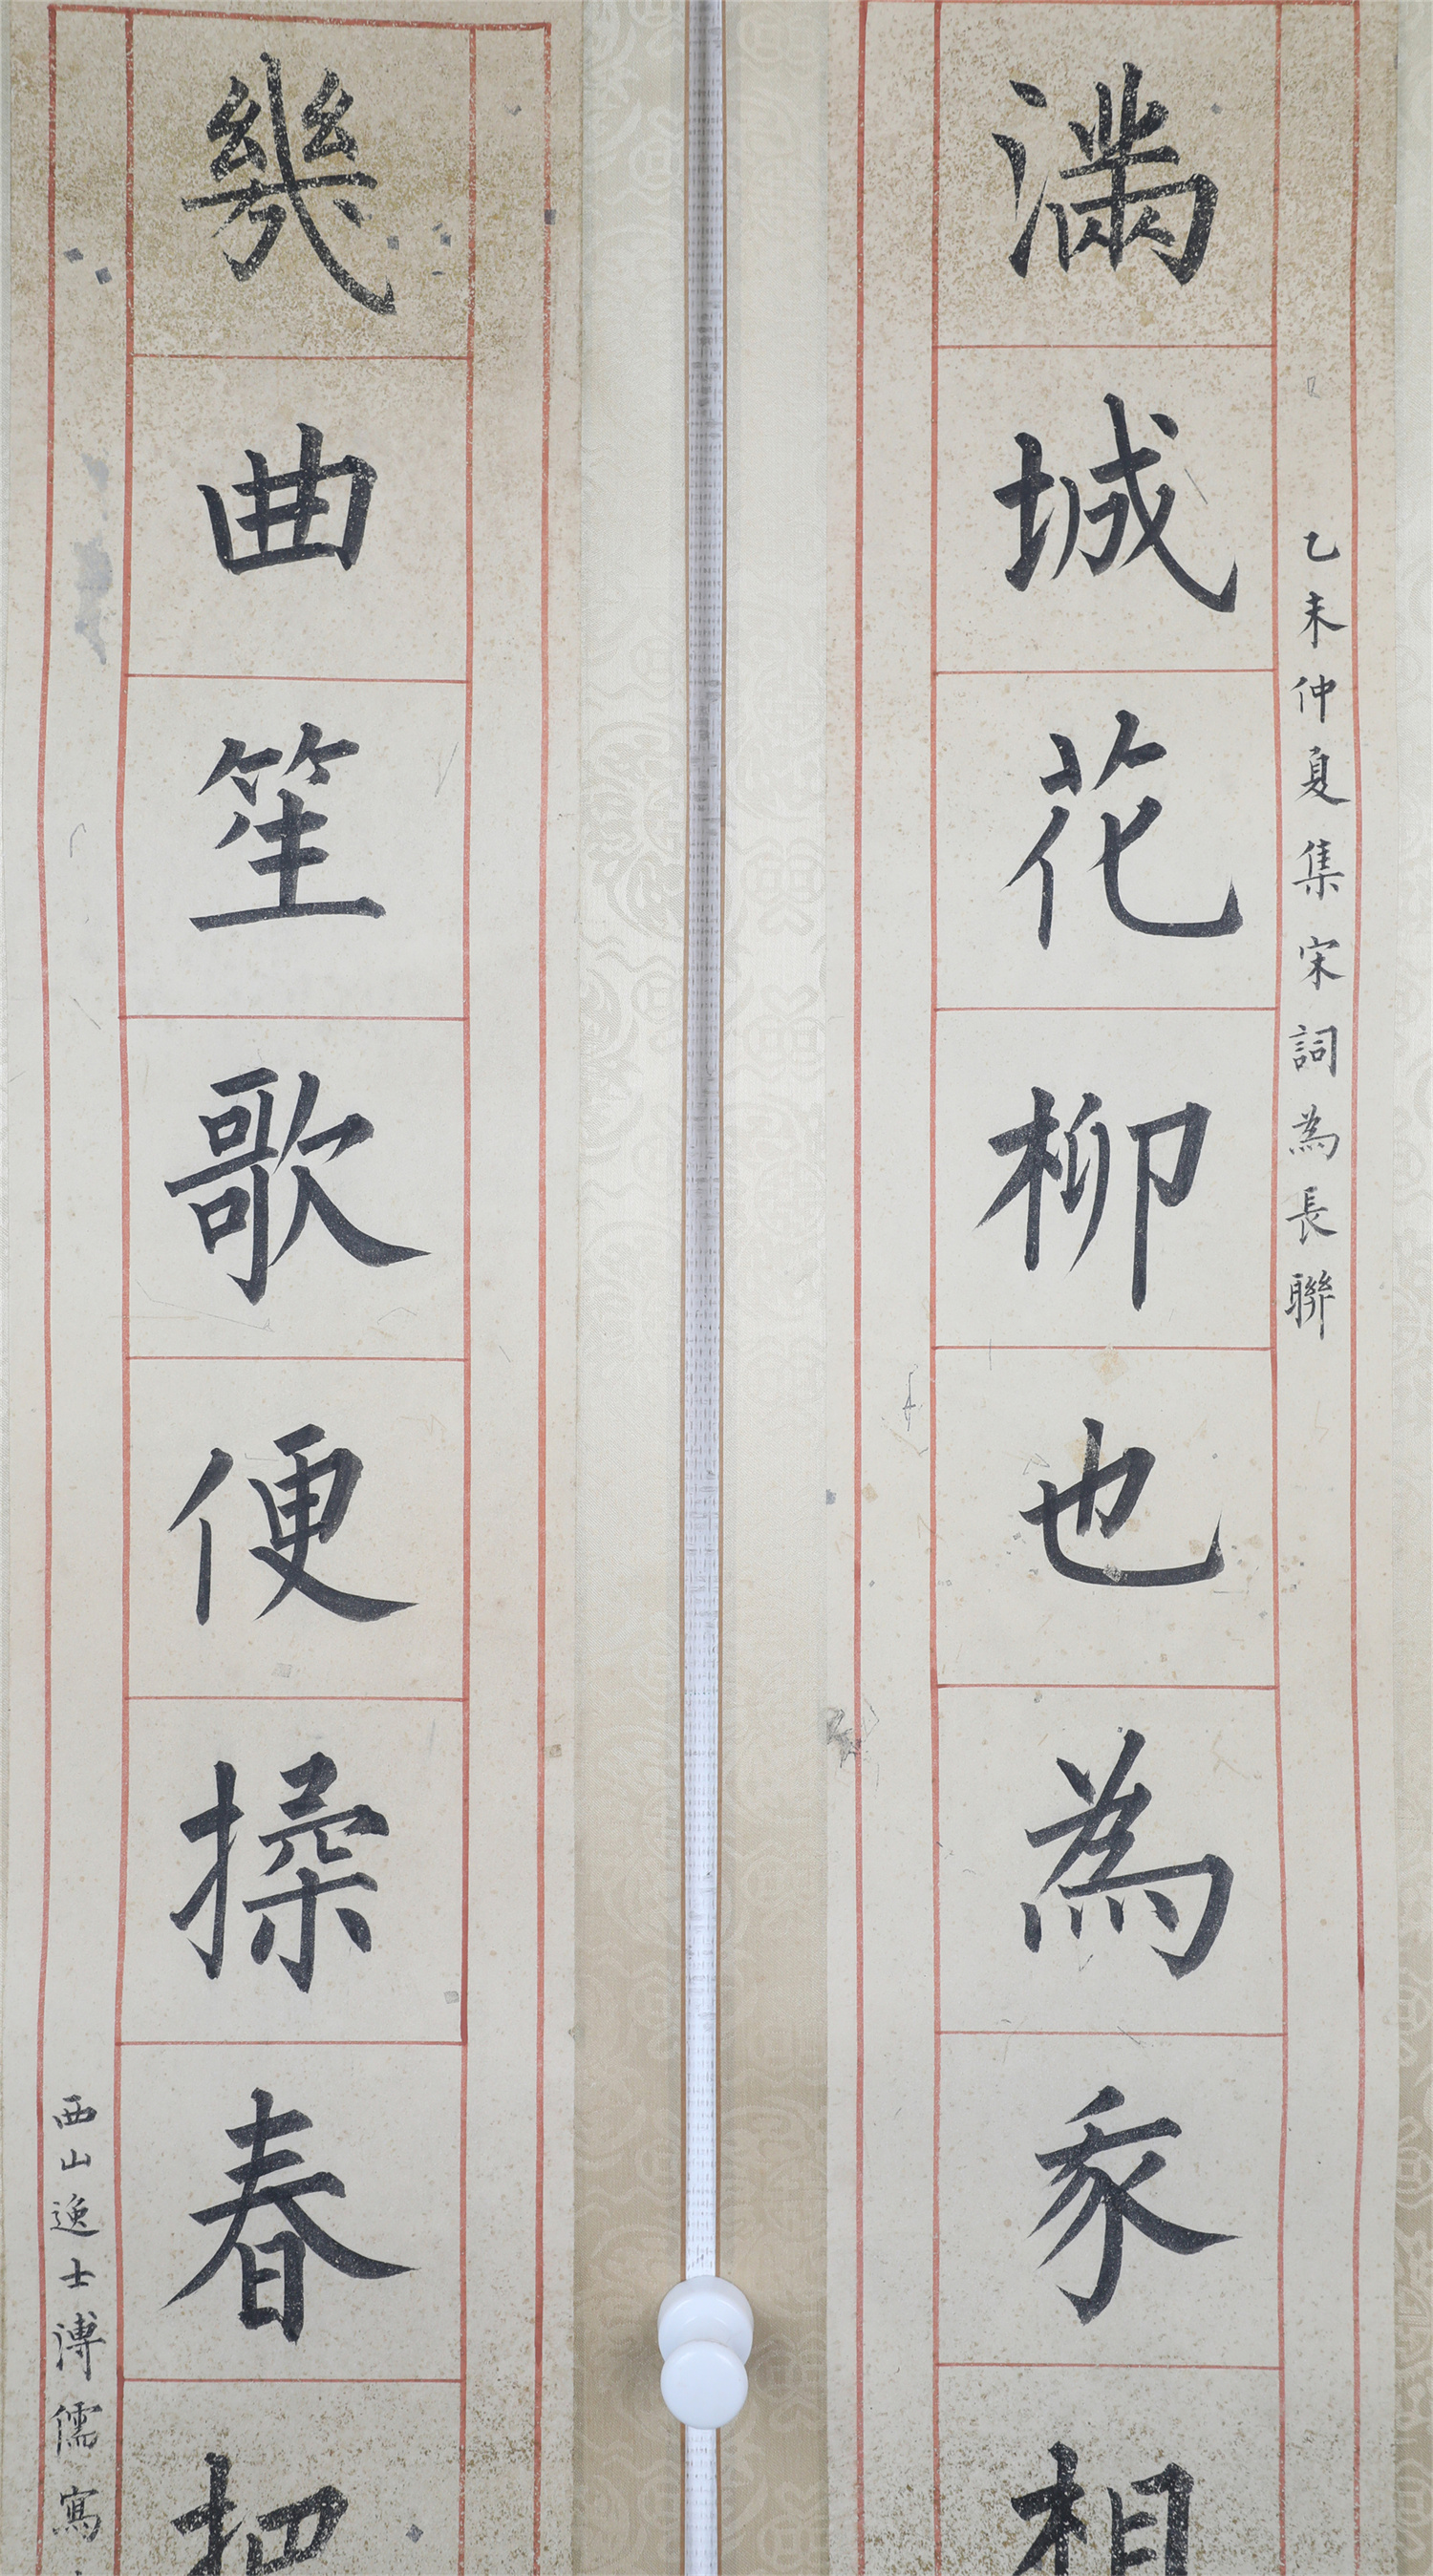 乙未仲夏集宋詞為長聯
滿城花柳也為相
幾曲笙歌便操春把
西山逸士溥儒寫